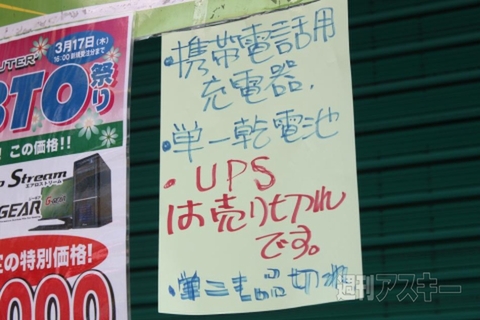 UTER
3月17日(木)
16:00新規受注分まで
BTO祭り
! この価格!!
Stream
エアロストリーム
GEAR
の特別価格!
000
・携帯電話用
充電器.
・単一乾電池
・UPS
は売り切れ
です。
・単三も品切れ
週刊アスキー